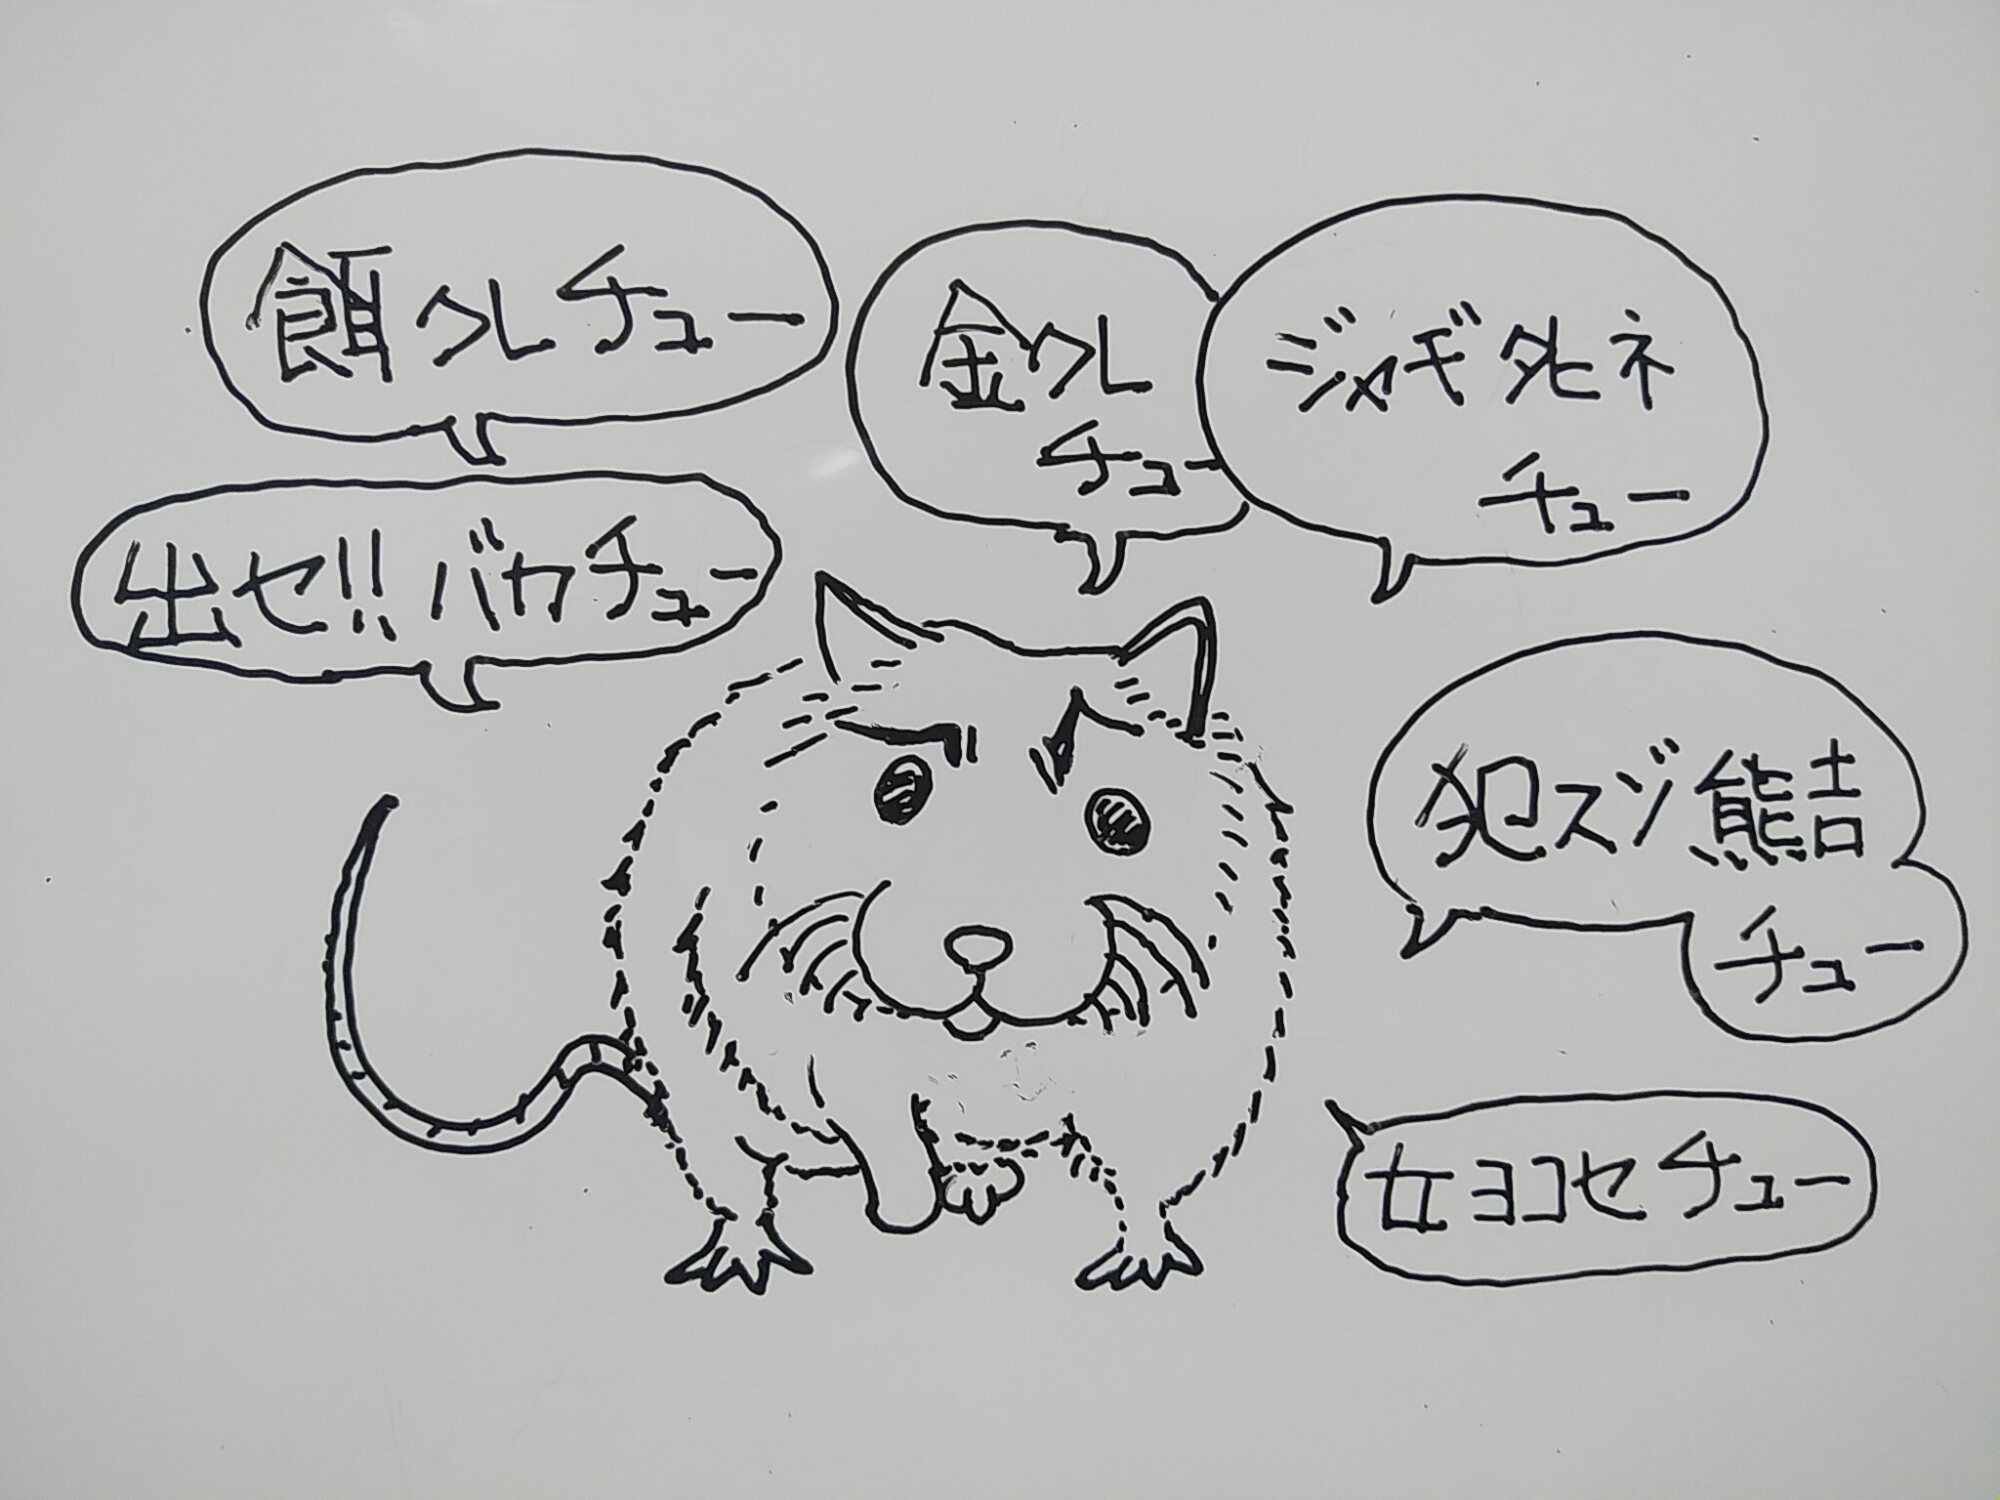 餌クレチュー
金クレ
チュー
ジャギ死ネ
チュー
出セ!!バカチュー
犯スゾ熊吉
チュー
女ヨコセチュー